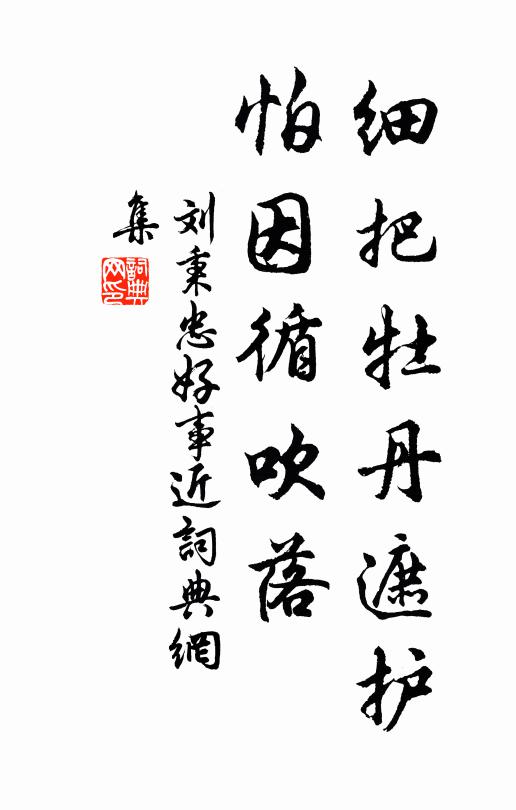 细把牡丹遮护
怕因循吹落
刘秉忠好事近詞典網
集
詞典网印